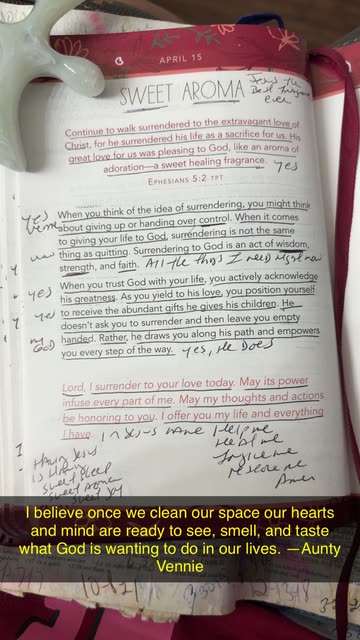 APRIL 15
SWEET AROMA
Jesus the
Best fragrance
ever
Continue to walk surrendered to the extravagant love of
Christ, for he surrendered his life as a sacrifice for us. His
great love for us was pleasing to God, like an aroma of
adoration—a sweet healing fragrance. yes
EPHESIANS 5:2 TPT
yes When you think of the idea of surrendering, you might think
about giving up or handing over control. When it comes
to giving your life to God, surrendering is not the same
thing as quitting. Surrendering to God is an act of wisdom,
strength, and faith. All the things I need right now
yes When you trust God with your life, you actively acknowledge
his greatness. As you yield to his love, you position yourself
yes to receive the abundant gifts he gives his children. He
my doesn't ask you to surrender and then leave you empty
God handed. Rather, he draws you along his path and empowers
you every step of the way. yes, He Does
Lord, I surrender to your love today. May its power
infuse every part of me. May my thoughts and actions
be honoring to you. I offer you my life and everything
I have. In Jesus name Help me
Heal me
forgive me
restore me
Amen
Having Jesus
is
sweet
sweet aroma
sweet Joy
I believe once we clean our space our hearts
and mind are ready to see, smell, and taste
what God is wanting to do in our lives. —Aunty
Vennie